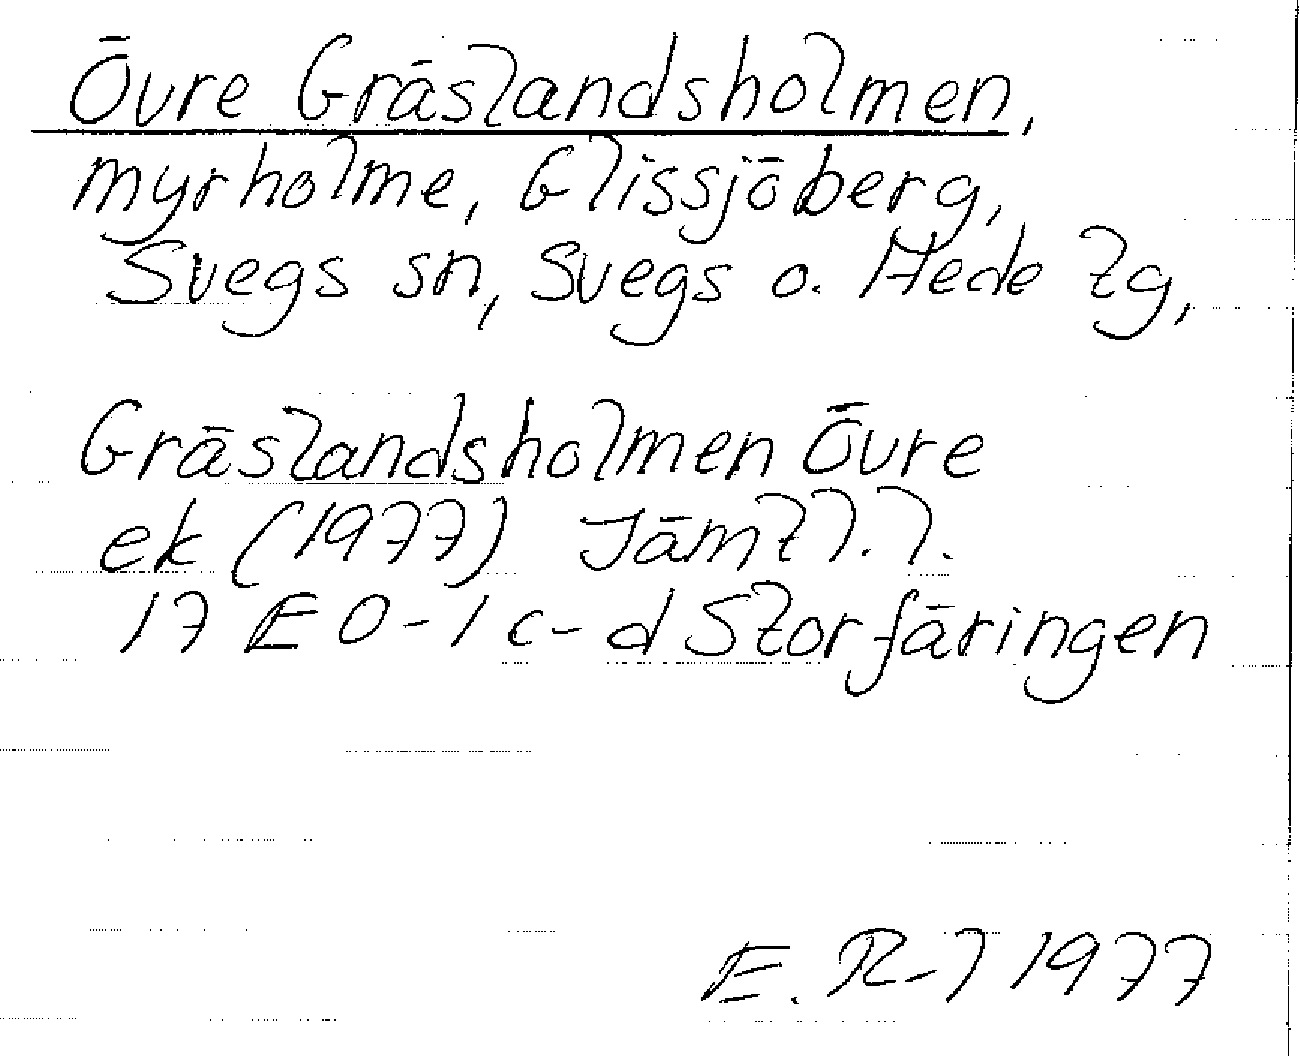 Övre Gräslandsholmen,
myrholme, Glissjöberg,
Svegs sn, Svegs o. Hede tg,
Gräslandsholmen Övre
ek (1977) Jämtl.l.
17 E 0-1 c-d Storfäringen
E. R-l 1977